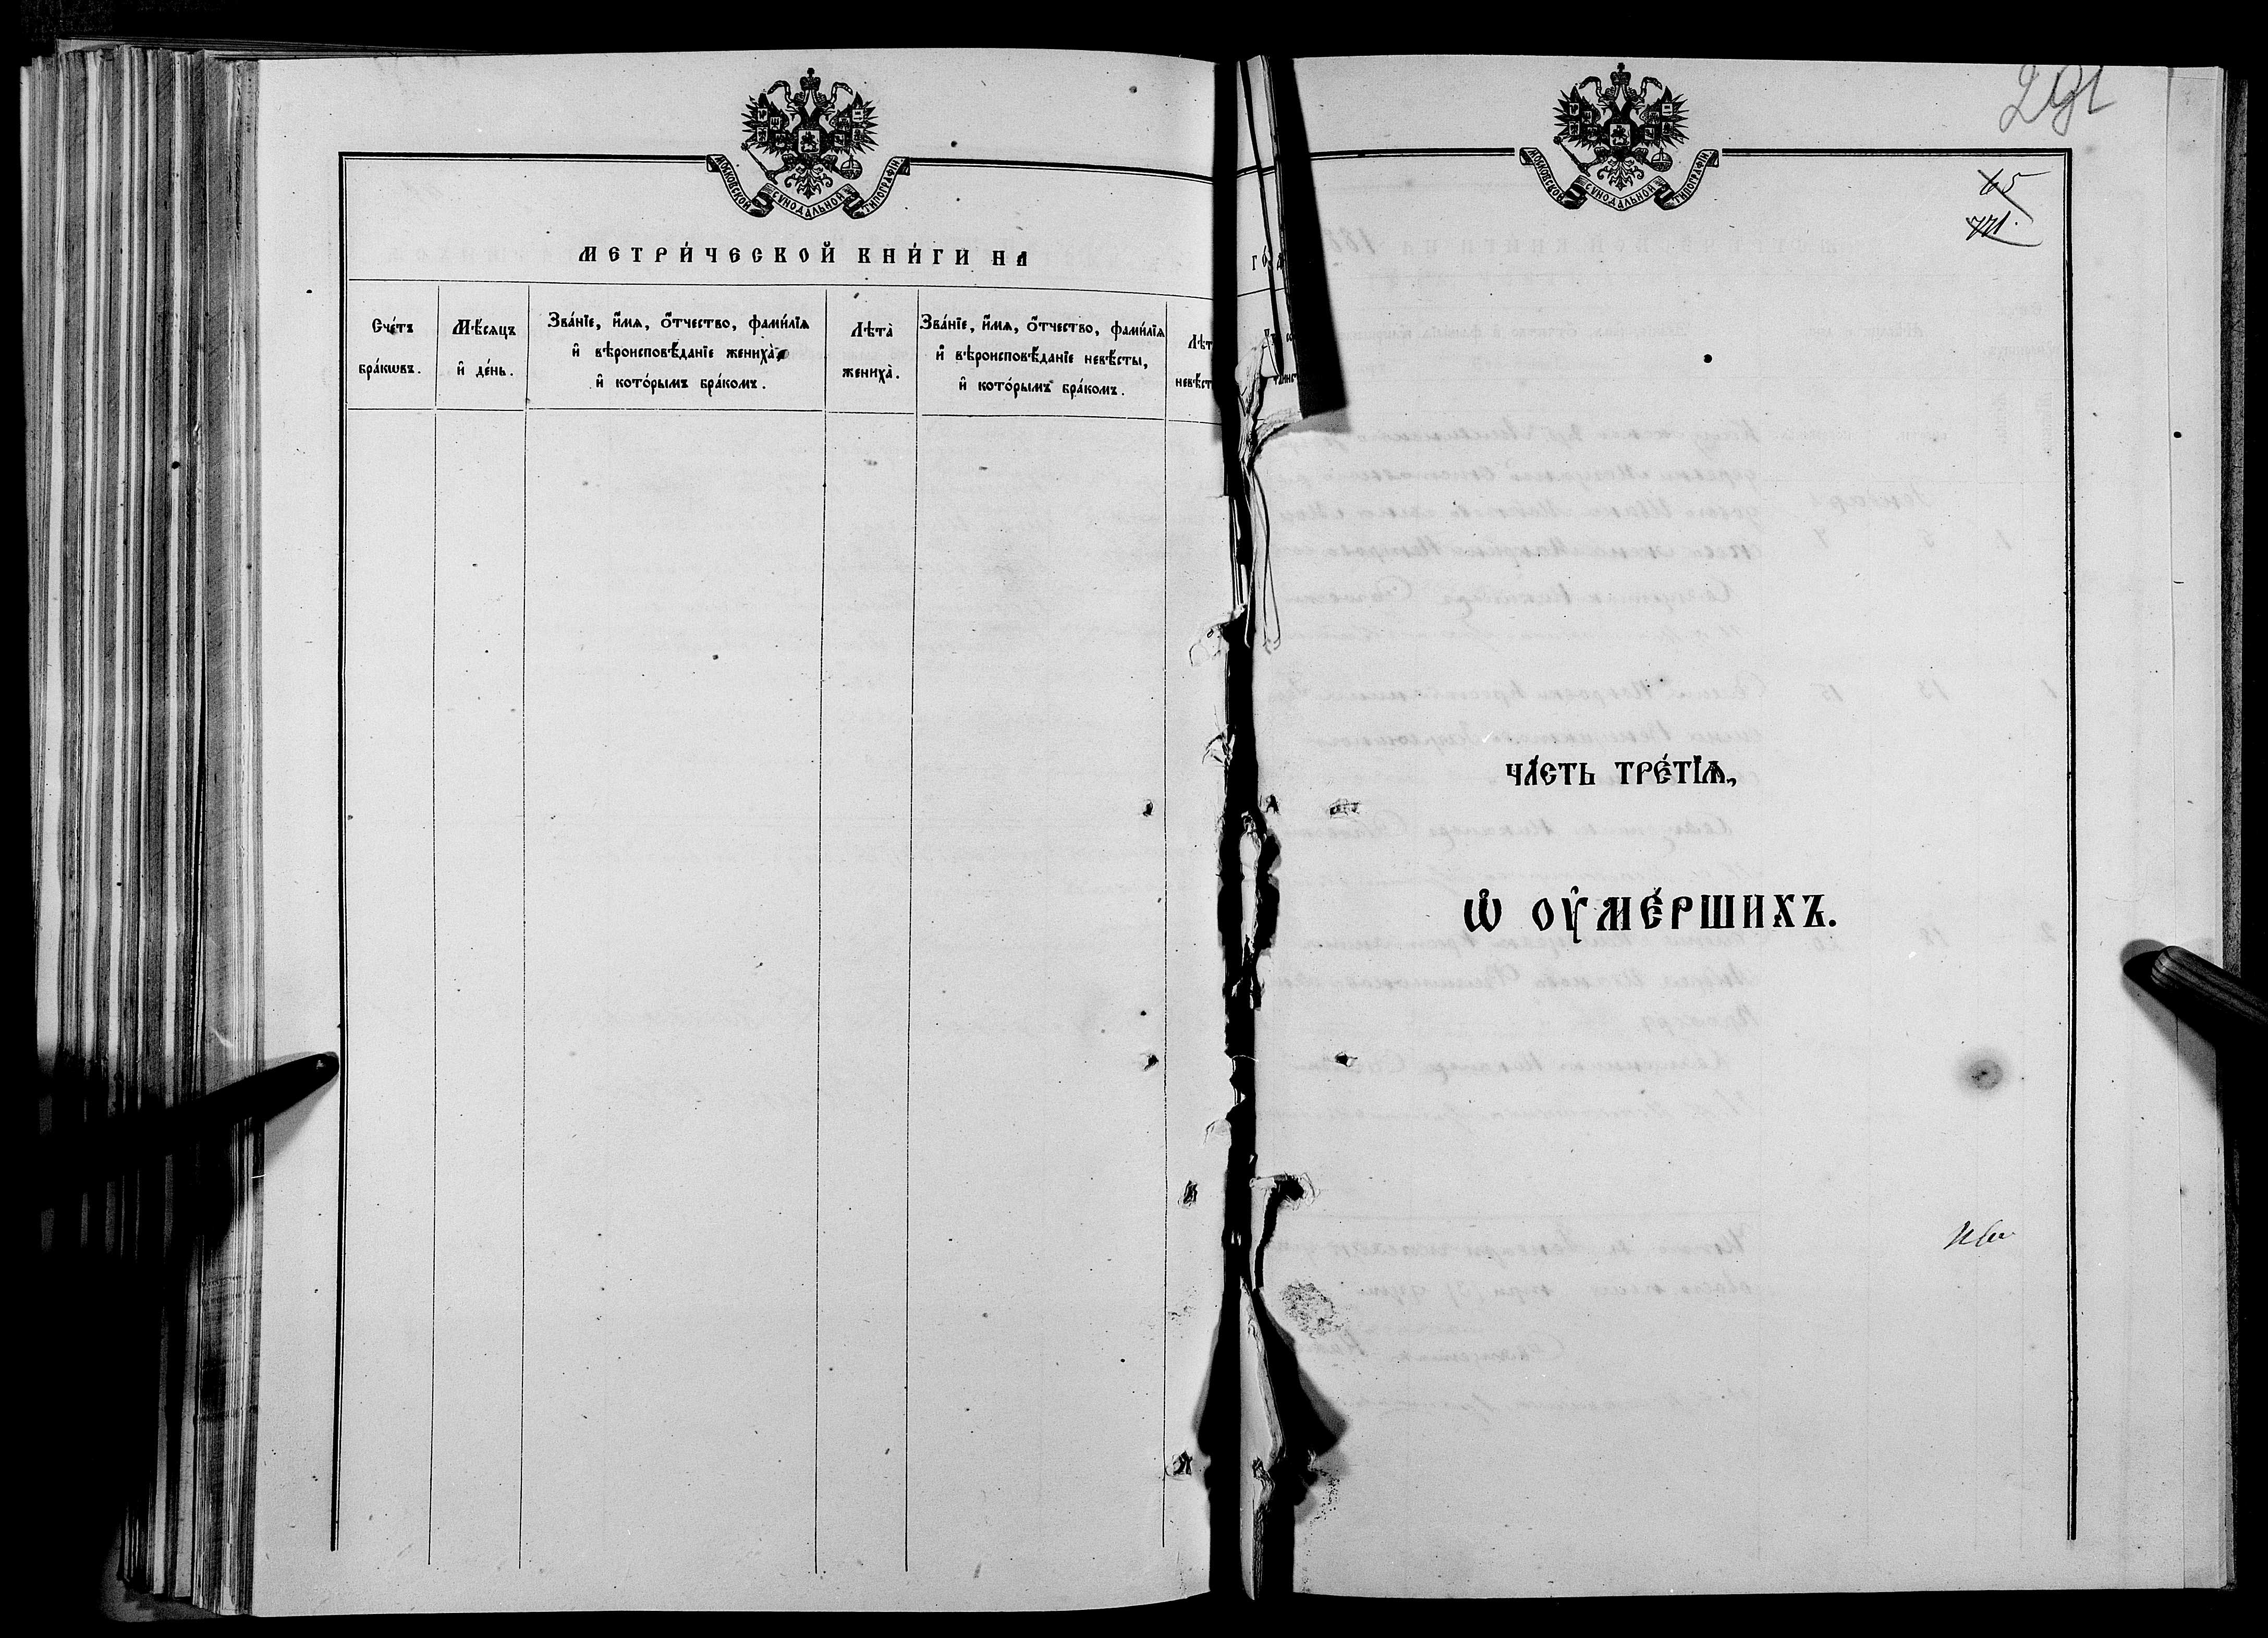 МОСКОВСКОЙ СѴНОДАЛЬНОЙ ТИПОГРАФІИ
МЕТРИ́ЧЕСКОЙ КНИ́ГИ НА
Сче́тъ бра́кѡвъ.
Мѣ́сяцъ и҆ де́нь.
Зва́нїе, и҆́мѧ, ѻ҆́тчество, фами́лїѧ
и҆ вѣроисповѣ́данїе жениха̀,
и҆ кото́рымъ бра́комъ.
Лѣта̀
жениха̀.
Зва́нїе, и҆́мѧ, ѻ҆́тчество, фами́лїѧ
и҆ вѣроисповѣ́данїе невѣ́сты,
и҆ кото́рымъ бра́комъ.
Лѣт
невѣ́ст
МОСКОВСКОЙ СѴНОДАЛЬНОЙ ТИПОГРАФІИ
291
65
771.
ЧА́СТЬ ТРЕ́ТЇѦ,
Ѡ҆ ОУ҆МЕ́РШИХЪ.